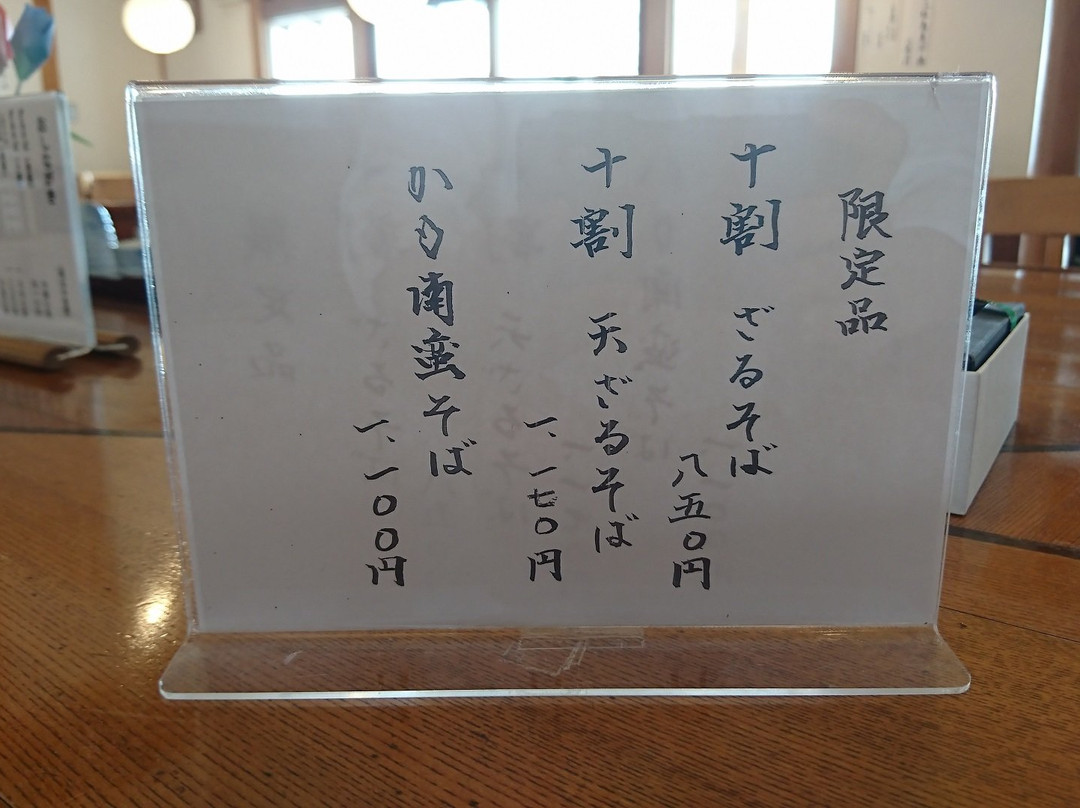 限定品
十割 ざるそば
八五〇円
十割 天ざるそば
一、一七〇円
かも南蛮そば
一、一〇〇円